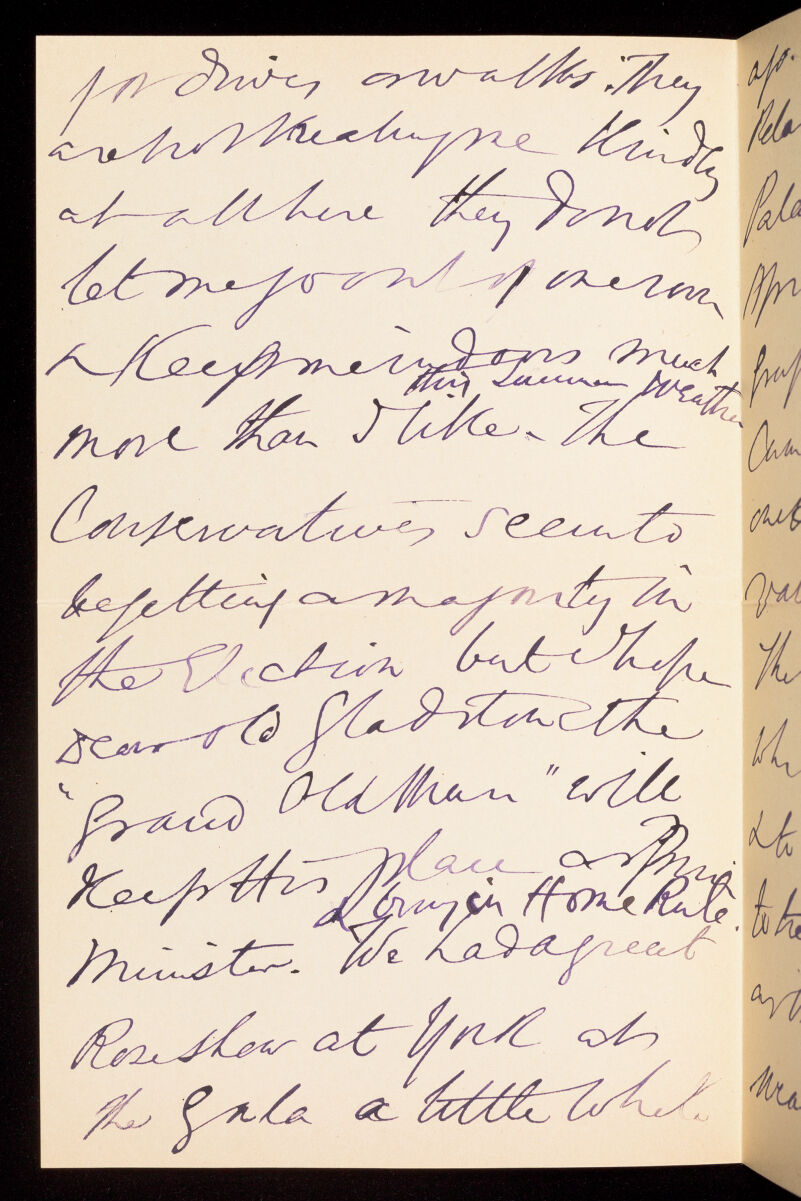 for drives or walks. They
are not treating me kindly
at all here they do not
let me go out of one room
& Keeps me indoors much
this Summer Weather
more than I like - The
Conservatives seem to
be getting a majority in
the Election but I hope
Dear old Gladstone the
"Grand Old Man" will
Keep His place as Prime
& bring in Home Rule.
Minister. We had a great
Rose show at York at
the Gala a little while